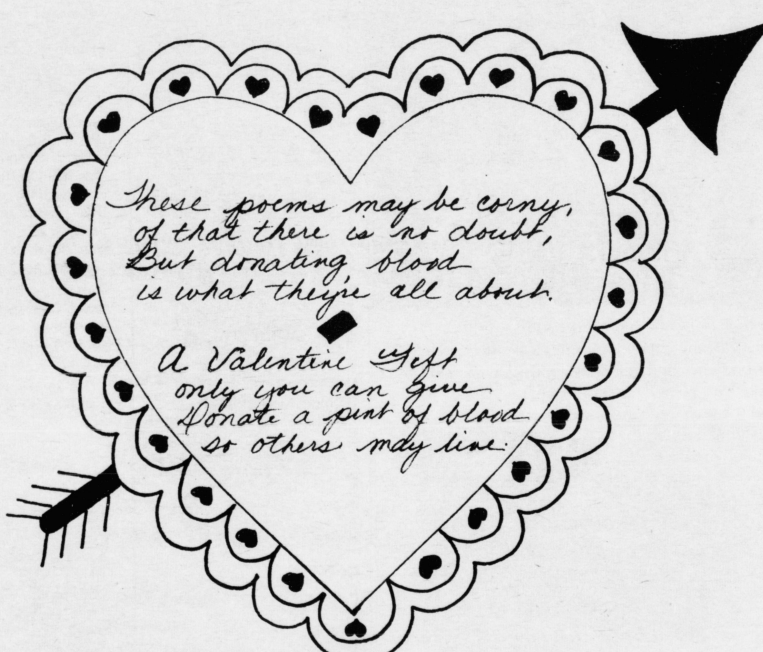 These poems may be corny,
of that there is no doubt,
But donating blood
is what they're all about.
A Valentine Gift
only you can give
Donate a pint of blood
so others may live.